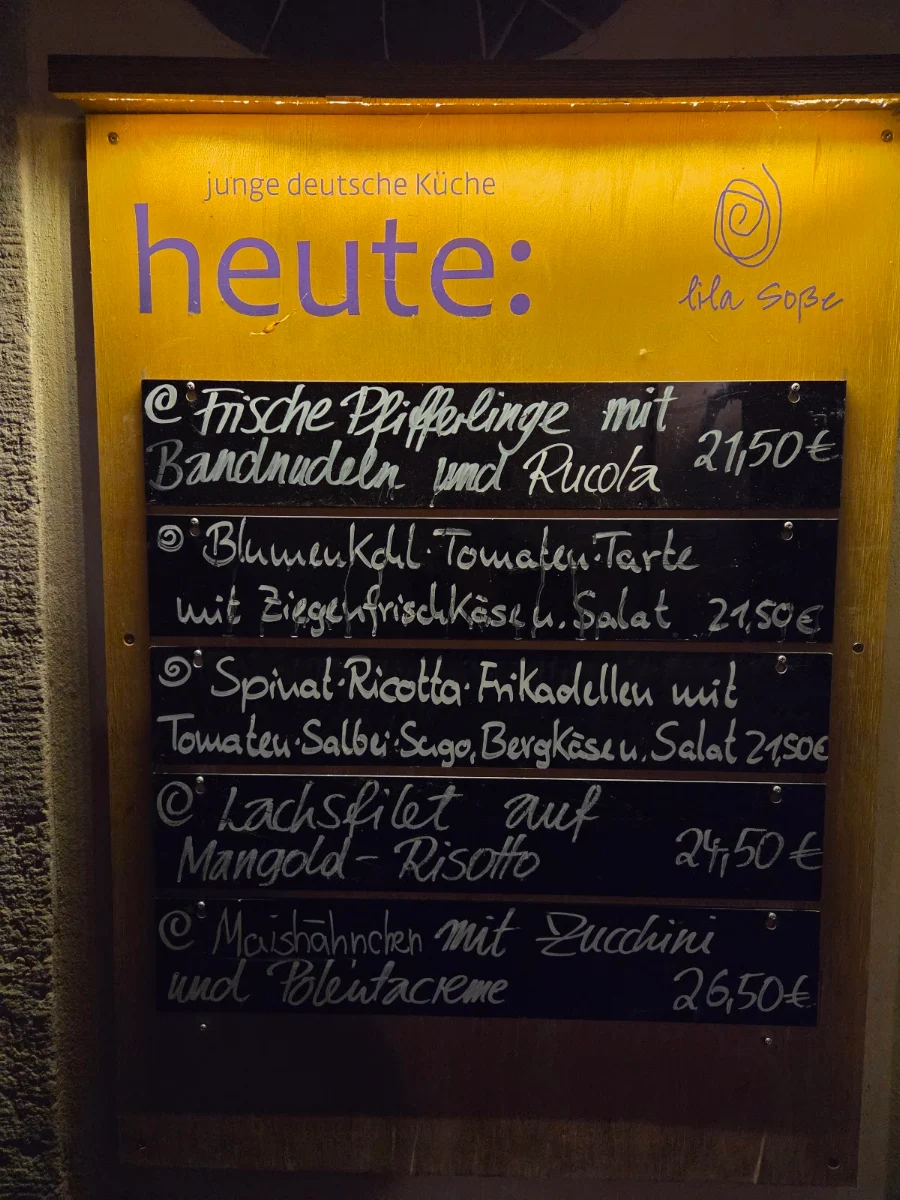 junge deutsche Küche
heute:
lila Soße
Frische Pfifferlinge mit
Bandnudeln und Rucola 21,50€
Blumenkohl·Tomaten·Tarte
mit Ziegenfrischkäse u. Salat 21,50€
Spinat·Ricotta·Frikadellen mit
Tomaten·Salbei·Sugo, Bergkäse u. Salat 21,50€
Lachsfilet auf
Mangold-Risotto 24,50€
Maishähnchen mit Zucchini
und Polentacreme 26,50€